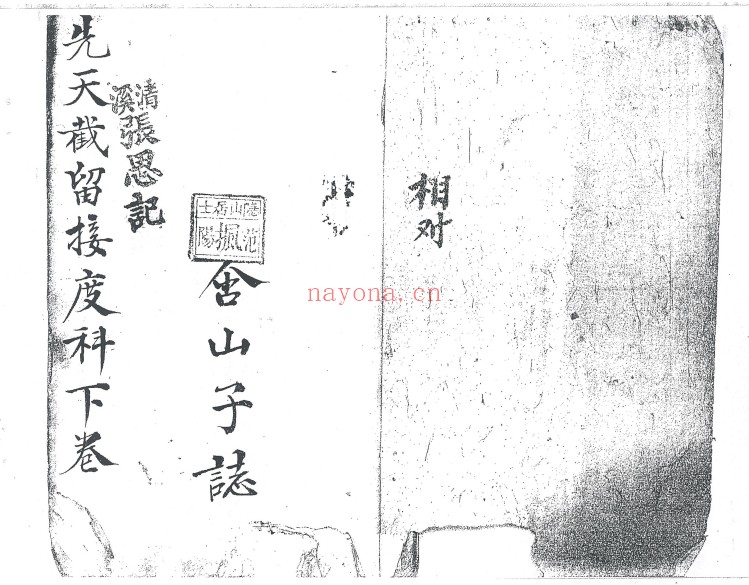 相对
山居士
山子誌
清溪
張恩記
先天截留接度科下卷
nayona.cn